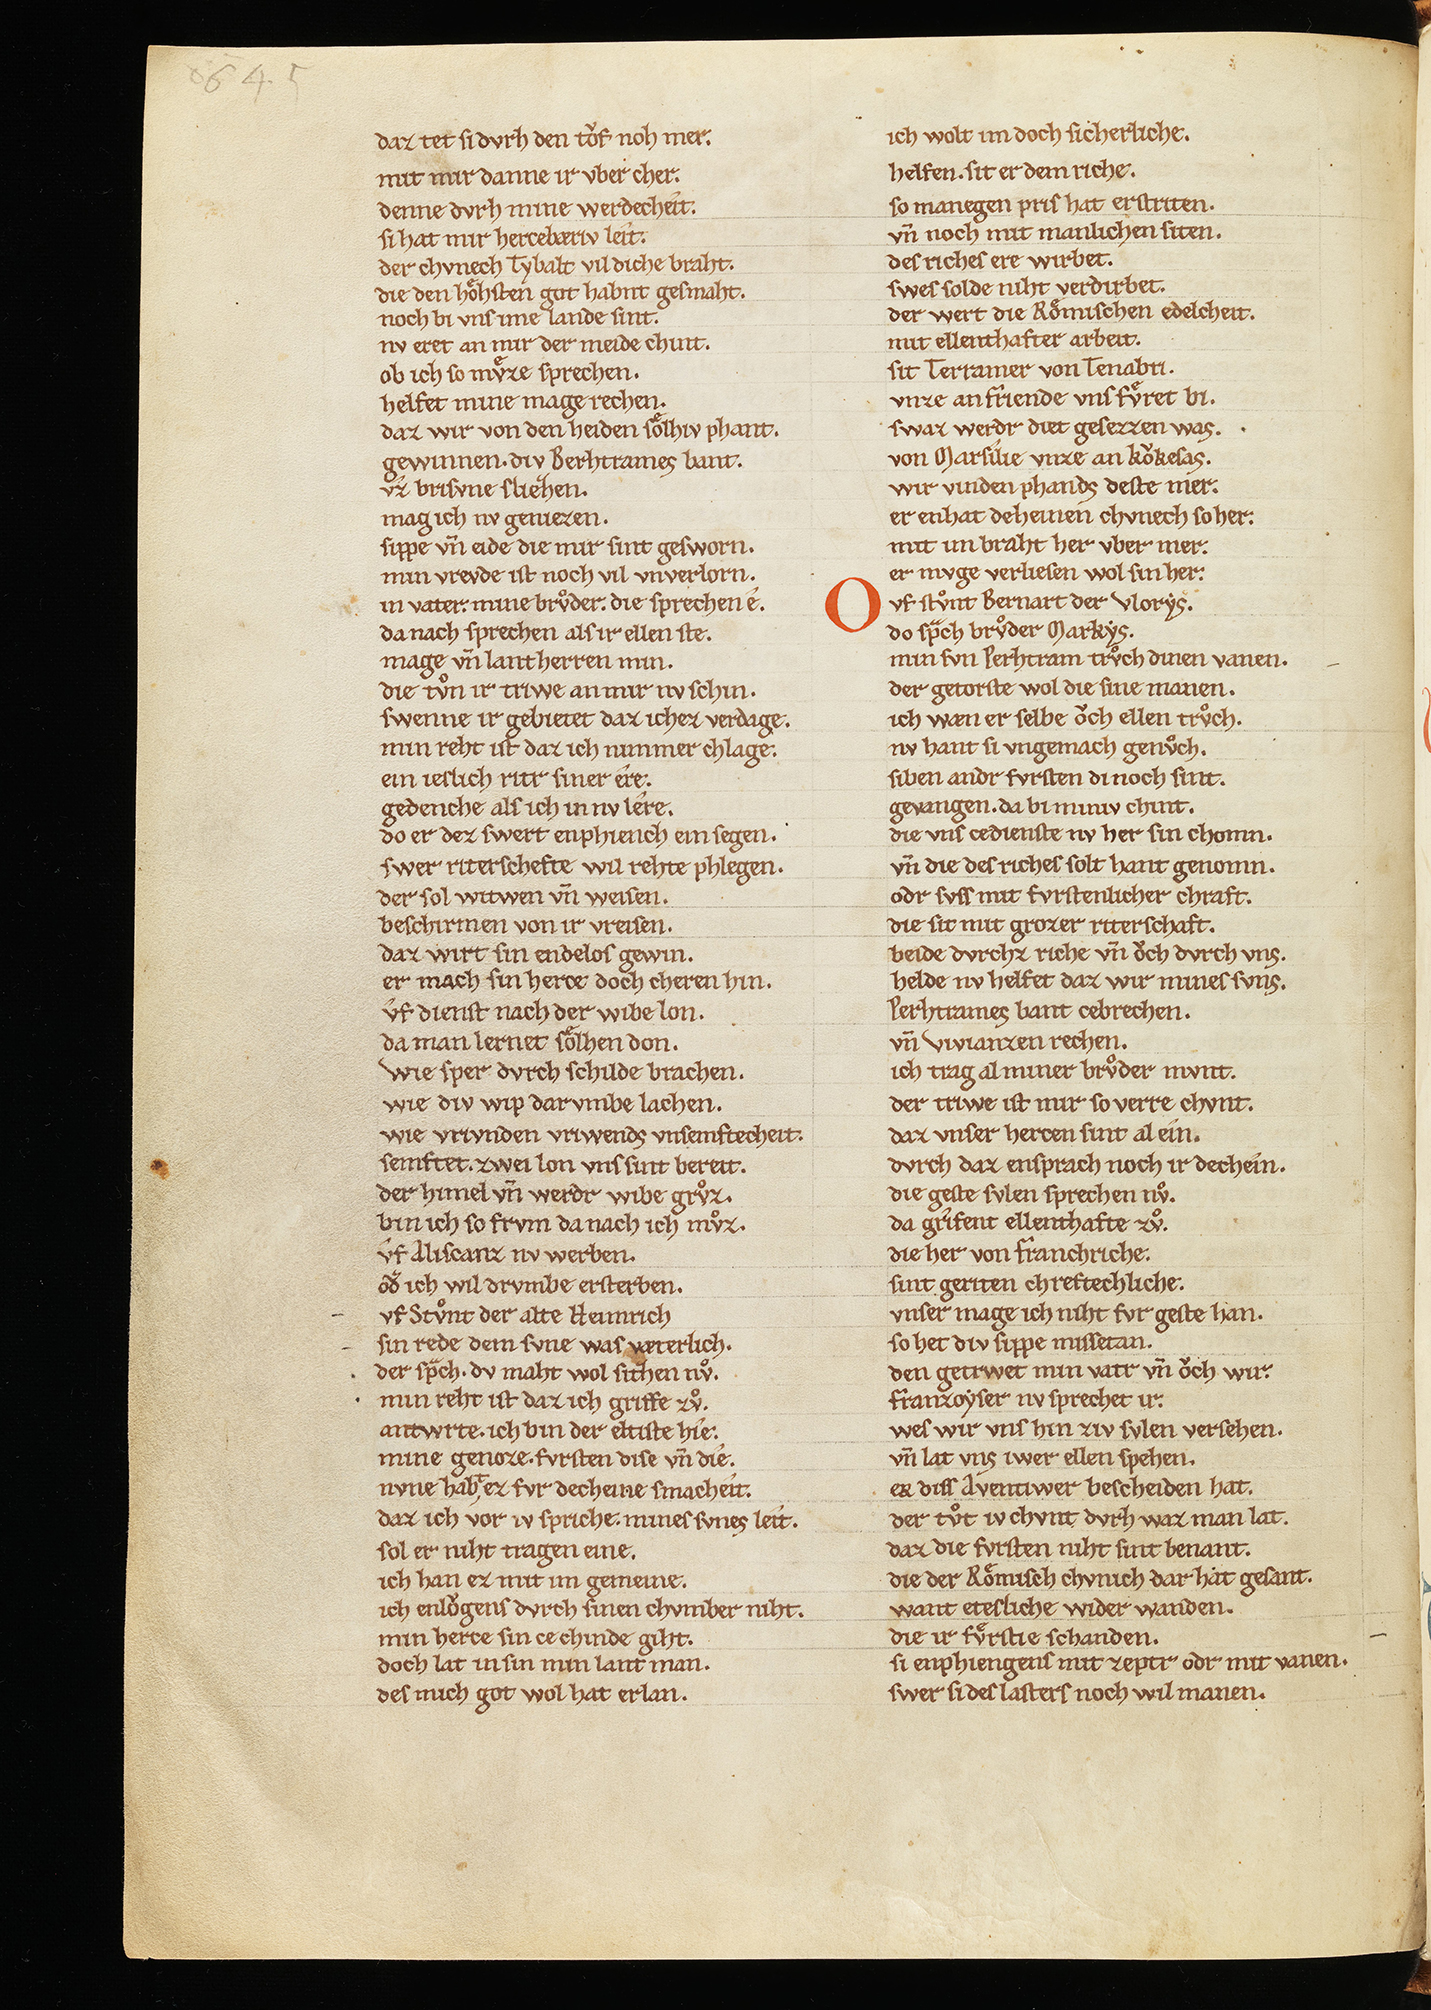 645
daz tet si dvrh den tǒf noh mer.
mit mir danne ir vber cher.
denne dvrh mine werdecheit.
si hat mir hercebæriv leit.
der chvnech Tybalt vil diche braht.
die den hoͤhsten got habnt gesmaht.
noch bi vns ime lande sint.
nv eret an mir der meide chint.
ob ich so mvͤze sprechen.
helfet mine mage rechen.
daz wir von den heiden soͤlhiv phant.
gewinnen. div Berhtrames bant.
vz brisvne sliehen.
mag ich nv geniezen.
sippe vn̄ eide die mir sint gesworn.
min vrevde ist noch vil vnverlorn.
in vater. mine brvͦder. die sprechen é.
da nach sprechen als ir ellen ste.
mage vn̄ lantherren min.
die tvͦn ir triwe an mir nv schin.
swenne ir gebietet daz ichez verdage.
min reht ist daz ich nimmer chlage.
ein ieslich ritr siner ére.
gedenche als ich in nv lére.
do er dez swert enphiench ein segen.
swer riterschefte wil rehte phlegen.
der sol witwen vn̄ weisen.
beschirmen von ir vreisen.
daz wirt sin endelos gewin.
er mach sin herce doch cheren hin.
vf dienst nach der wibe lon.
da man lernet soͤlhen don.
wie sper dvrch schilde brachen.
wie div wip darvmbe lachen.
wie vrivnden vriwends vnsemftecheit.
semftet. zwei lon vns sint bereit.
der himel vn̄ werdr wibe grvͦz.
bin ich so frvm da nach ich mvͦz.
vf Aliscanz nv werben.
od̄ ich wil drvmbe ersterben.
vf Stvͦnt der alte Heimrich
sin rede dem svne was væterlich.
der sp̄ch. dv maht wol sithen nvͦ.
min reht ist daz ich griffe zvͦ.
antwrte. ich bin der eltiste hie.
mine genoze. fvrsten dise vn̄ die.
nvne hab ez fvr decheine smacheit.
daz ich vor iv spriche. mines svnes leit.
sol er niht tragen eine.
ich han ez mit im gemeine.
ich enlǒgens dvrch sinen chvmber niht.
min herce sin ce chinde giht.
doch lat in sin min lant man.
des mich got wol hat erlan.
ich wolt im doch sicherliche.
helfen. sit er dem riche.
so manegen pris hat erstriten.
vn̄ noch mit manlichen siten.
des riches ere wirbet.
swes solde niht verdirbet.
der wert die Roͤmischen edelcheit.
mit ellenthafter arbeit.
sit Terramer von Tenabri.
vnze an friende vns fvͤret bi.
swaz werdr diet gesezzen was.
von Marsilie vnze an kǒkesas.
wir vinden phands deste mer.
er enhat deheinen chvnech so her.
mit im braht her vber mer.
er mvge verliesen wol sin her.
O vf stvͦnt Bernart der Vlorys.
do sp̄ch brvͦder Markys.
min svn Perhtram trvͦch dinen vanen.
der getorste wol die sine manen.
ich wæn er selbe ǒch ellen trvͦch.
nv hant si vngemach genvͦch.
siben andr fvrsten di noch sint.
gevangen. da bi miniv chint.
die vns cedienste nv her sin chomn.
vn̄ die des riches solt hant genomn.
odr svss mit fvrstenlicher chraft.
die sit mit grozer riterschaft.
beide dvrchz riche vn̄ ǒch dvrch vns.
helde nv helfet daz wir mines svns.
Perhtrames bant cebrechen.
vn̄ Vivianzen rechen.
ich trag al miner brvͦder mvnt.
der triwe ist mir so verre chvnt.
daz vnser hercen sint al ein.
dvrch daz ensprach noch ir dechein.
die geste svlen sprechen nvͦ.
da grifent ellenthafte zvͦ.
die her von franchriche.
sint geriten chreftechliche.
vnser mage ich niht fvr geste han.
so het div sippe missetan.
den getrwet min vatr vn̄ ǒch wir.
franzoyser nv sprechet ir.
wes wir vns hin ziv svlen versehen.
vn̄ lat vns iwer ellen spehen.
er diss Aventiwer bescheiden hat.
der tvͦt iv chvnt dvrh waz man lat.
daz die fvrsten niht sint benant.
die der Roͤmisch chvnich dar hat gesant.
want etesliche wider wanden.
die ir fvͤrstie schanden.
si enphiengens mit zeptr odr mit vanen.
swer si des lasters noch wil manen.